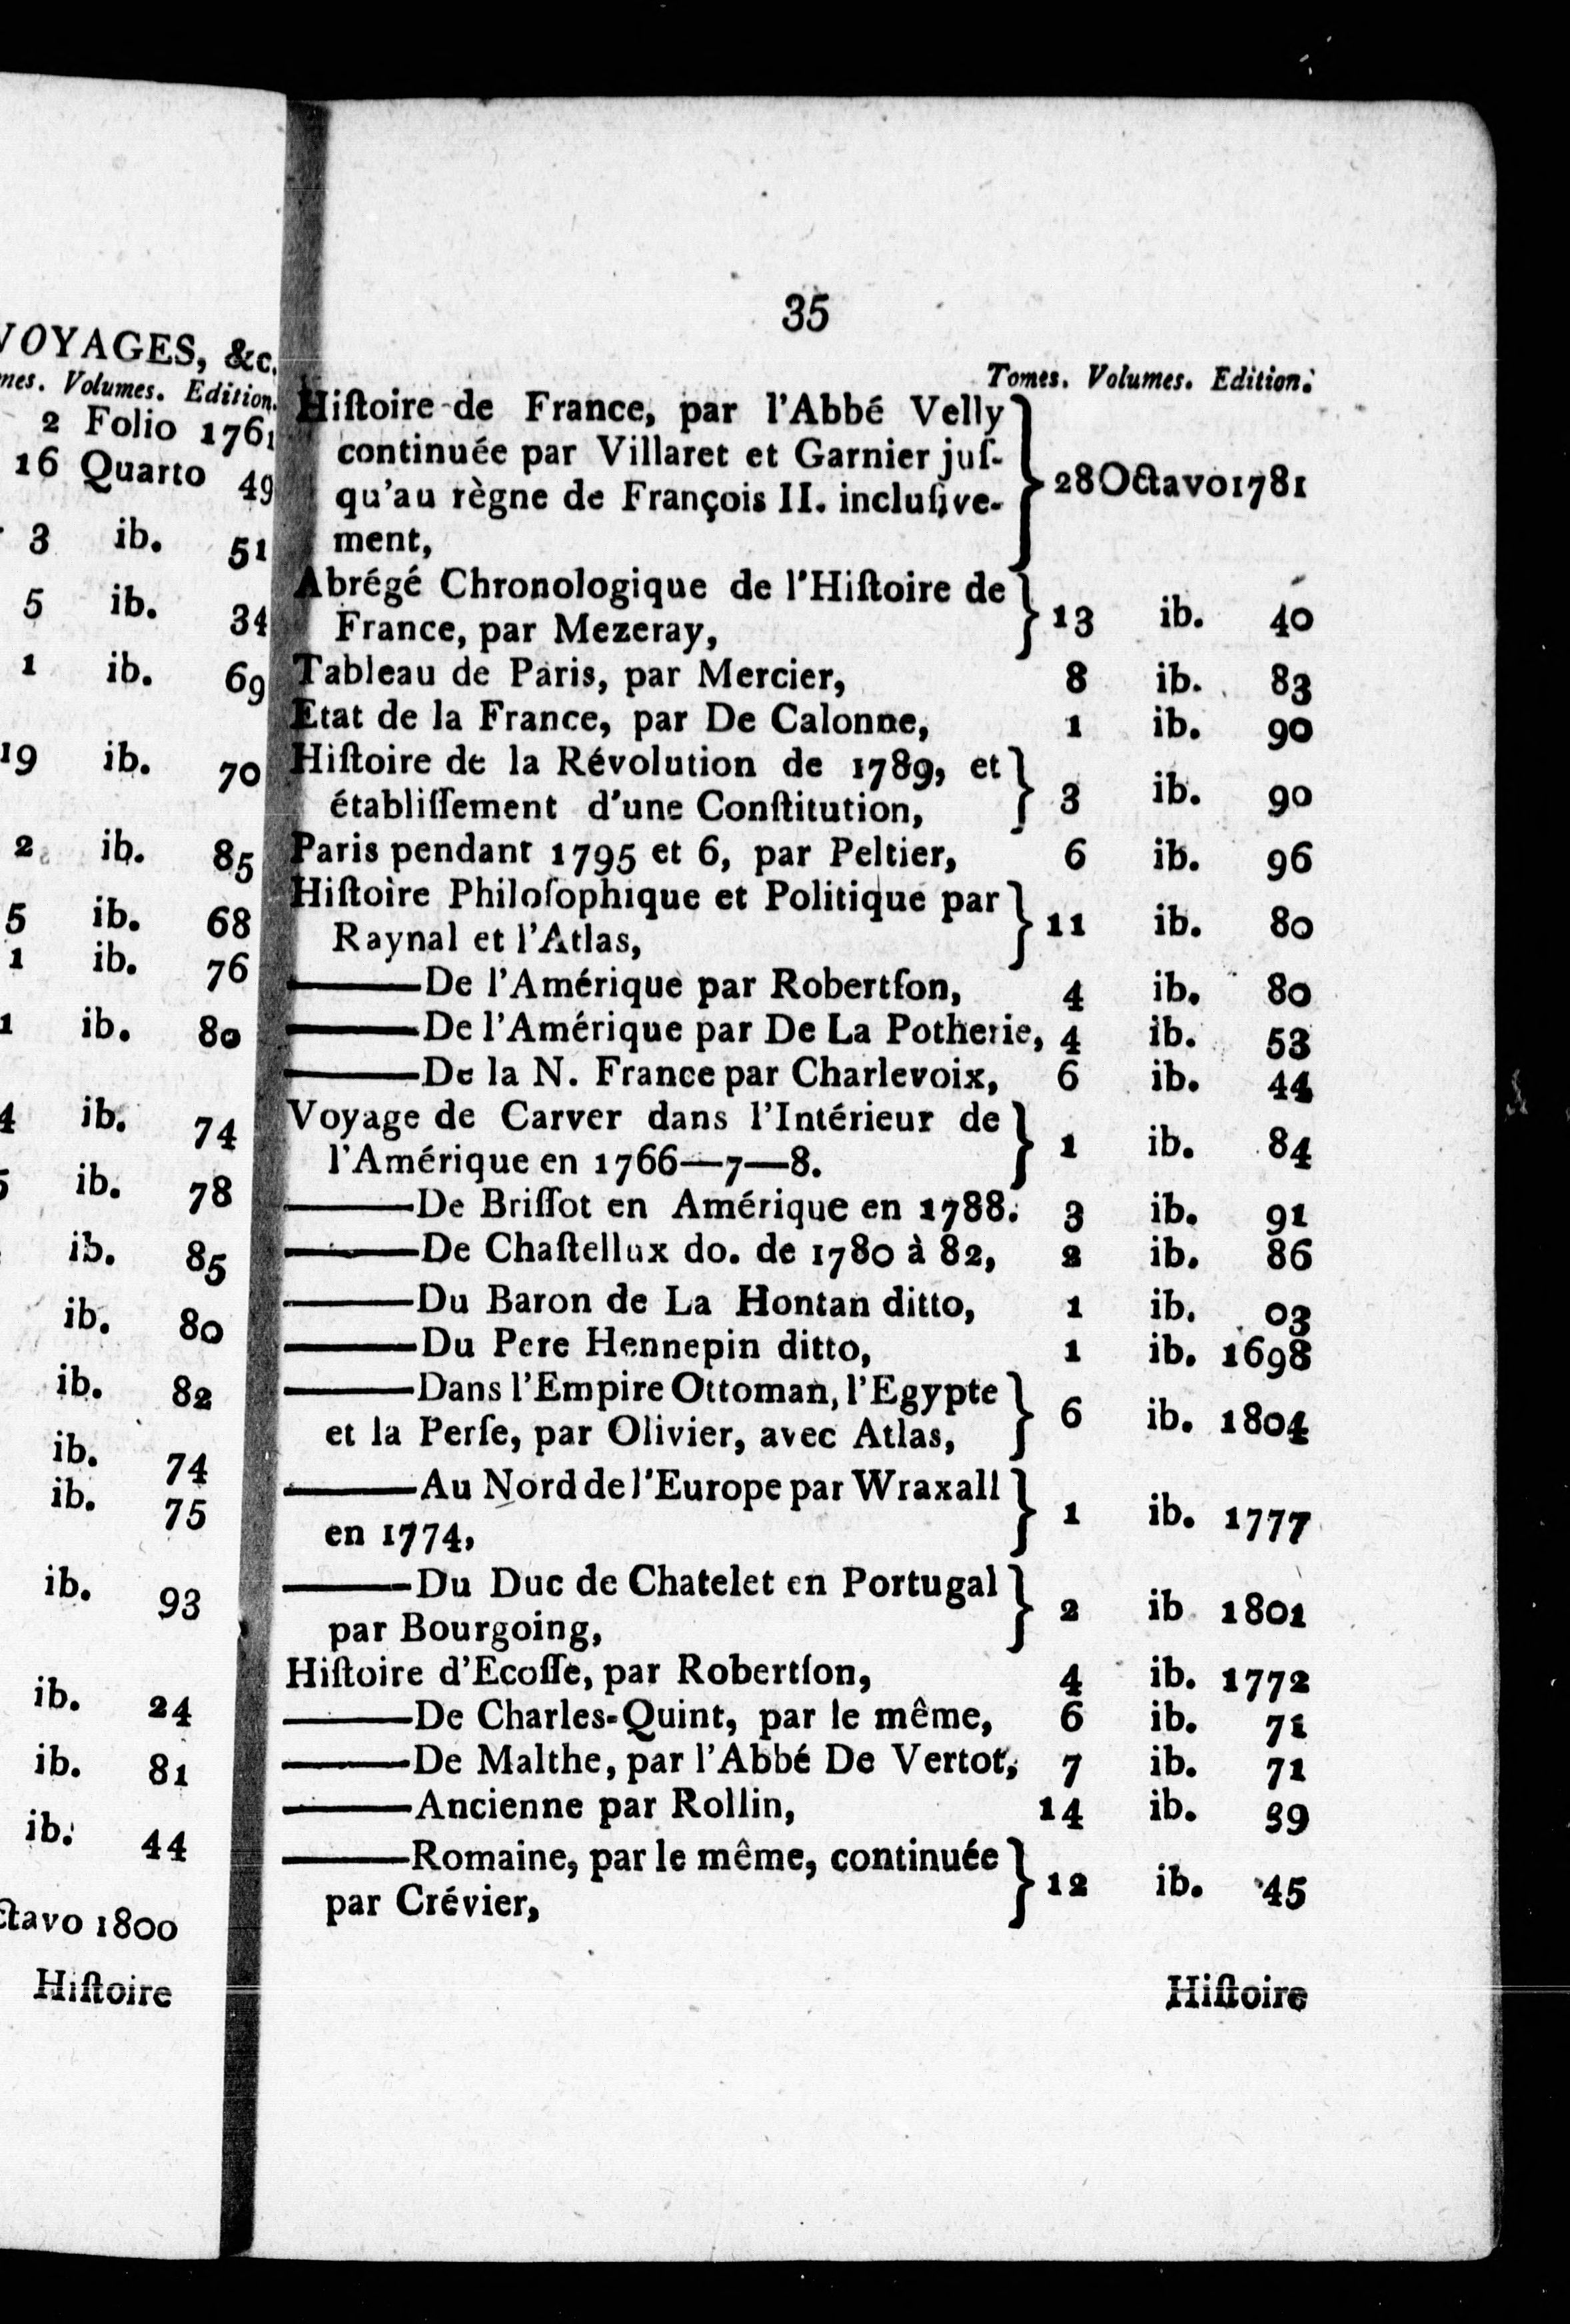 VOYAGES, &c.
mes. Volumes. Edition.
2 Folio 1761
16 Quarto 49
3 ib. 51
5 ib. 34
1 ib. 69
19 ib. 70
2 ib. 85
5 ib. 68
1 ib. 76
1 ib. 80
4 ib. 74
5 ib. 78
ib. 85
ib. 80
ib. 82
ib. 74
ib. 75
ib. 93
ib. 24
ib. 81
ib. 44
ctavo 1800
Hiſtoire
35
Tomes. Volumes. Edition.
Hiſtoire de France, par l'Abbé Velly
continuée par Villaret et Garnier juſ-
qu'au règne de François II. incluſive-
ment, } 28 Octavo 1781
Abrégé Chronologique de l'Hiſtoire de
France, par Mezeray, } 13 ib. 40
Tableau de Paris, par Mercier, 8 ib. 83
Etat de la France, par De Calonne, 1 ib. 90
Hiſtoire de la Révolution de 1789, et
établiſſement d'une Conſtitution, } 3 ib. 90
Paris pendant 1795 et 6, par Peltier, 6 ib. 96
Hiſtoire Philoſophique et Politique par
Raynal et l'Atlas, } 11 ib. 80
———De l'Amérique par Robertſon, 4 ib. 80
———De l'Amérique par De La Potherie, 4 ib. 53
———De la N. France par Charlevoix, 6 ib. 44
Voyage de Carver dans l'Intérieur de
l'Amérique en 1766—7—8. } 1 ib. 84
———De Briſſot en Amérique en 1788. 3 ib. 91
———De Chaſtellux do. de 1780 à 82, 2 ib. 86
———Du Baron de La Hontan ditto, 1 ib. 03
———Du Pere Hennepin ditto, 1 ib. 1698
———Dans l'Empire Ottoman, l'Egypte
et la Perſe, par Olivier, avec Atlas, } 6 ib. 1804
———Au Nord de l'Europe par Wraxall
en 1774, } 1 ib. 1777
———Du Duc de Chatelet en Portugal
par Bourgoing, } 2 ib 1801
Hiſtoire d'Ecoſſe, par Robertſon, 4 ib. 1772
———De Charles-Quint, par le même, 6 ib. 71
———De Malthe, par l'Abbé De Vertot, 7 ib. 71
———Ancienne par Rollin, 14 ib. 39
———Romaine, par le même, continuée
par Crévier, } 12 ib. 45
Hiſtoire